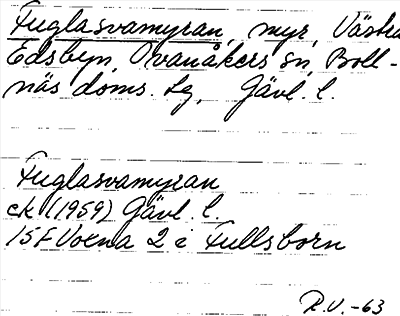 Fuglasvamyran, myr, Västra
Edsbyn, Ovanåkers sn, Boll-
näs doms. tg, Gävl. l.
Fuglasvamyran
ek (1959) Gävl. l.
15F Voxna 2 e Fullsborn
R.V.-63